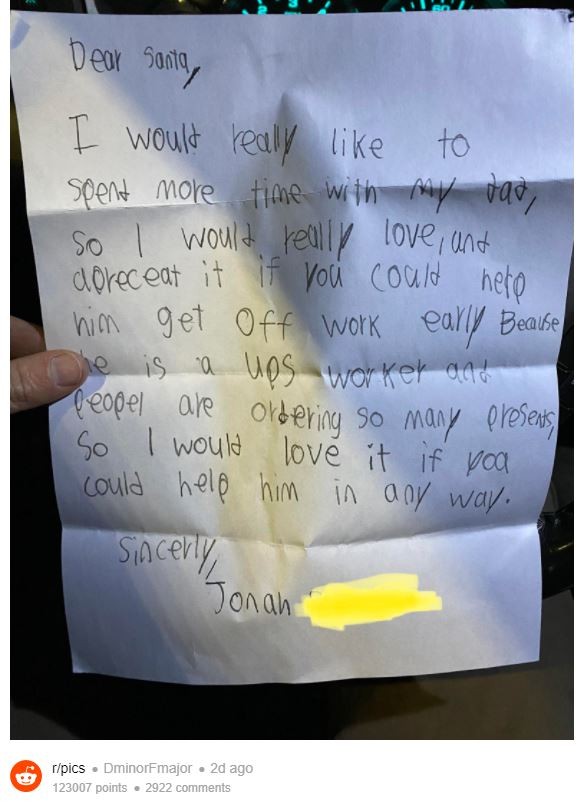 Dear Santa,
I would really like to
spend more time with my dad,
So I would really love, and
apreceat it if you could help
him get off work early Because
he is a ups worker and
peopel are ordering so many presents,
So I would love it if you
could help him in any way.
Sincerly,
Jonah
r/pics • DminorFmajor • 2d ago
123007 points • 2922 comments